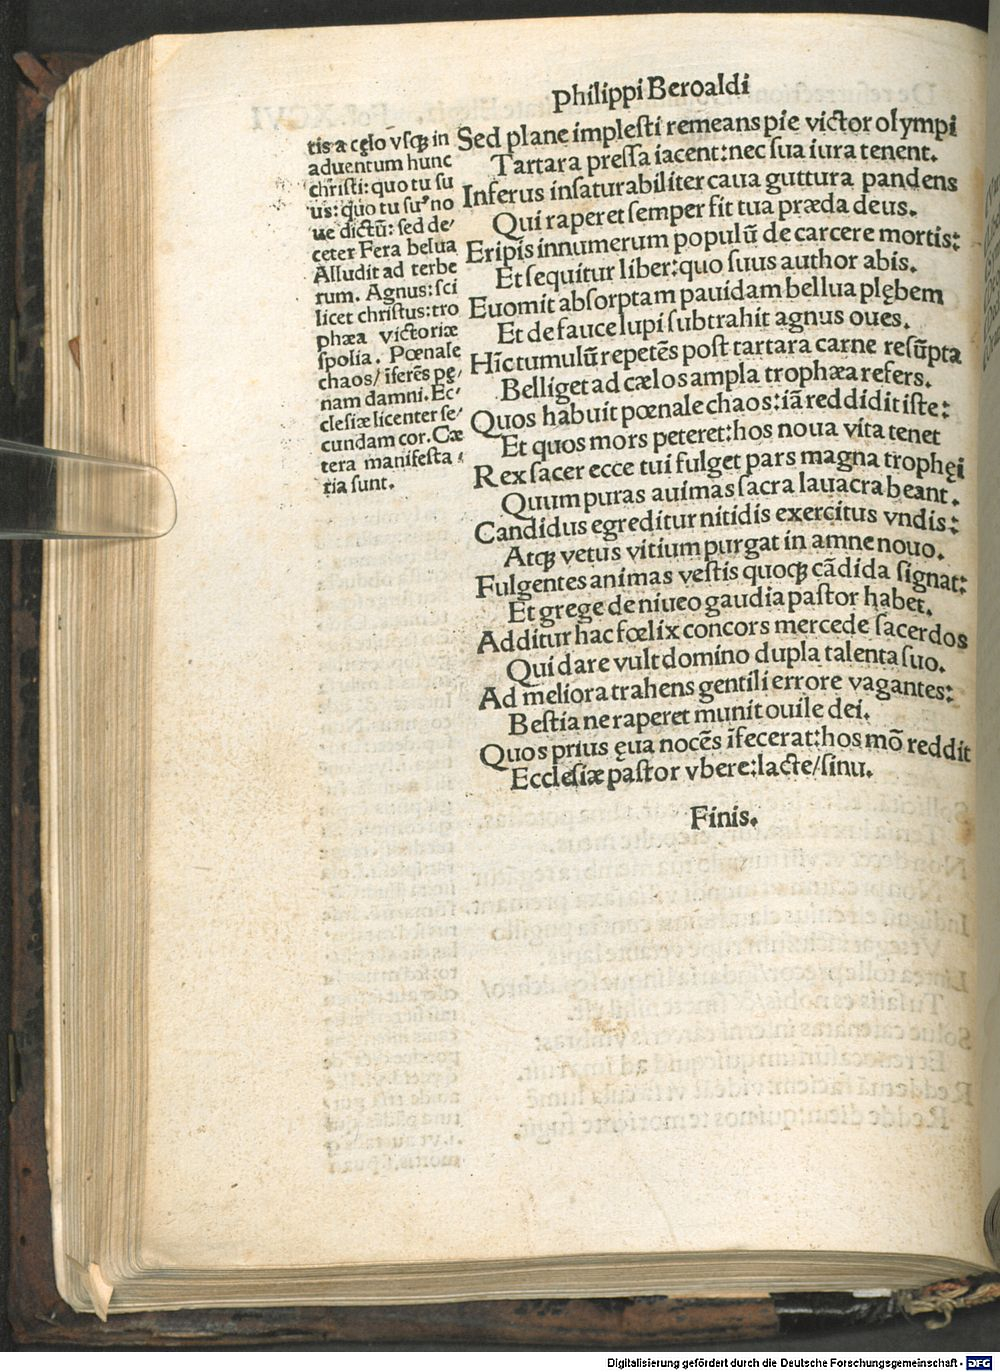 philippi Beroaldi
tis a cęlo vsqꝫ in
aduentum hunc
christi: quo tu su
us: quo tu su⁹ no
ue dictũ: sed de/
ceter Fera belua
Alludit ad terbe
rum. Agnus: sci
licet christus: tro
phæa victoriæ
spolia. Pœnale
chaos/ iferẽs pę/
nam damni. Ec/
clesiæ licenter se/
cundam cor. Cæ
tera manifesta
ria sunt.
Sed plane implesti remeans pie victor olympi
Tartara pressa iacent: nec sua iura tenent.
Inferus insaturabiliter caua guttura pandens
Qui raperet semper fit tua præda deus.
Eripis innumerum populũ de carcere mortis:
Et sequitur liber: quo suus author abis.
Euomit absorptam pauidam bellua plębem
Et de fauce lupi subtrahit agnus oues.
Hĩc tumulũ repetẽs post tartara carne resũpta
Belliget ad cælos ampla trophæa refers.
Quos habuit pœnale chaos: iã reddidit iste:
Et quos mors peteret: hos noua vita tenet
Rex sacer ecce tui fulget pars magna trophęi
Quum puras auimas sacra lauacra beant.
Candidus egreditur nitidis exercitus vndis:
Atqꝫ vetus vitium purgat in amne nouo.
Fulgentes animas vestis quoqꝫ cãdida signat:
Et grege de niueo gaudia pastor habet.
Additur hac fœlix concors mercede sacerdos
Qui dare vult domino dupla talenta suo.
Ad meliora trahens gentili errore vagantes:
Bestia ne raperet munit ouile dei.
Quos prius ęua nocẽs ifecerat: hos mõ reddit
Ecclesiæ pastor vbere: lacte/ sinu.
Finis.
Digitalisierung gefördert durch die Deutsche Forschungsgemeinschaft - DFG